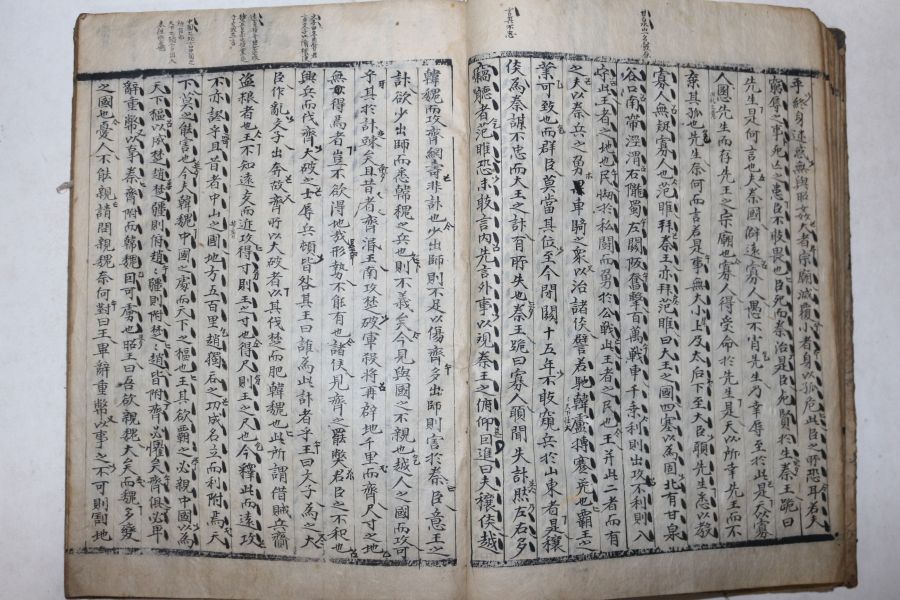 平終身迷惑無與昭姦大者宗廟滅覆小者身以孤危此臣之所恐耳若夫
窮辱之事死亡之患臣不敢畏也臣死而秦治是臣死賢於生秦王跪曰
先生是何言也夫秦國僻遠寡人愚不肖先生乃幸辱至於此是天以寡
人慁先生而存先王之宗廟也寡人得受命於先生是天以所幸先王而不
棄其孤也先生奈何而言若是事無大小上及太后下至大臣願先生悉以教
寡人無疑寡人也范睢拜秦王亦拜范睢曰大王之國四塞以爲固北有甘泉
谷口南帶涇渭右隴蜀左關阪奮擊百萬戰車千乘利則出攻不利則入
守此王者之地也民怯於私鬪而勇於公戰此王者之民也王并此二者而有
之夫以秦兵之勇車騎之衆以治諸侯譬若馳韓盧搏蹇兎也覇王之
業可致也而群臣莫當其位至今閉關十五年不敢窺兵於山東者是穰
侯爲秦謀不忠而大王之計有所失也秦王跪曰寡人願聞失計然左右多
竊聽者范睢恐未敢言內先言外事以觀秦王之俯仰因進曰夫穰侯越
韓魏而攻齊綱壽非計也少出師則不足以傷齊多出師則害於秦臣意王之
計欲少出師而悉韓魏之兵也則不義矣今見與國之不親也越人之國而攻可
乎其於計疎矣且昔者齊湣王南攻楚破軍殺將再辟地千里而齊尺寸之地
無得焉者豈不欲得地哉形勢不能有也諸侯見齊之罷獘君臣之不和也
興兵而伐齊大破之士辱兵頓皆咎其王曰誰爲此計者乎王曰文子爲之大
臣作亂文子出奔故齊所以大破者以其伐楚而肥韓魏也此所謂借賊兵齎
盜粮者也王不如遠交而近攻得寸則王之寸也得尺則王之尺也今釋此而遠攻
不亦謬乎且昔者中山之國地方五百里趙獨呑之功成名立而利附焉天
下莫之能害也今夫韓魏中國之處而天下之樞也王其欲覇必親中國以爲
天下樞以威楚趙楚彊則附趙趙彊則附楚楚趙皆附齊必懼矣齊懼必卑
辭重幣以事秦齊附而韓魏因可虜也昭王曰吾欲親魏久矣而魏多變
之國也寡人不能親請問親魏奈何對曰王卑辭重幣以事之不可則割地